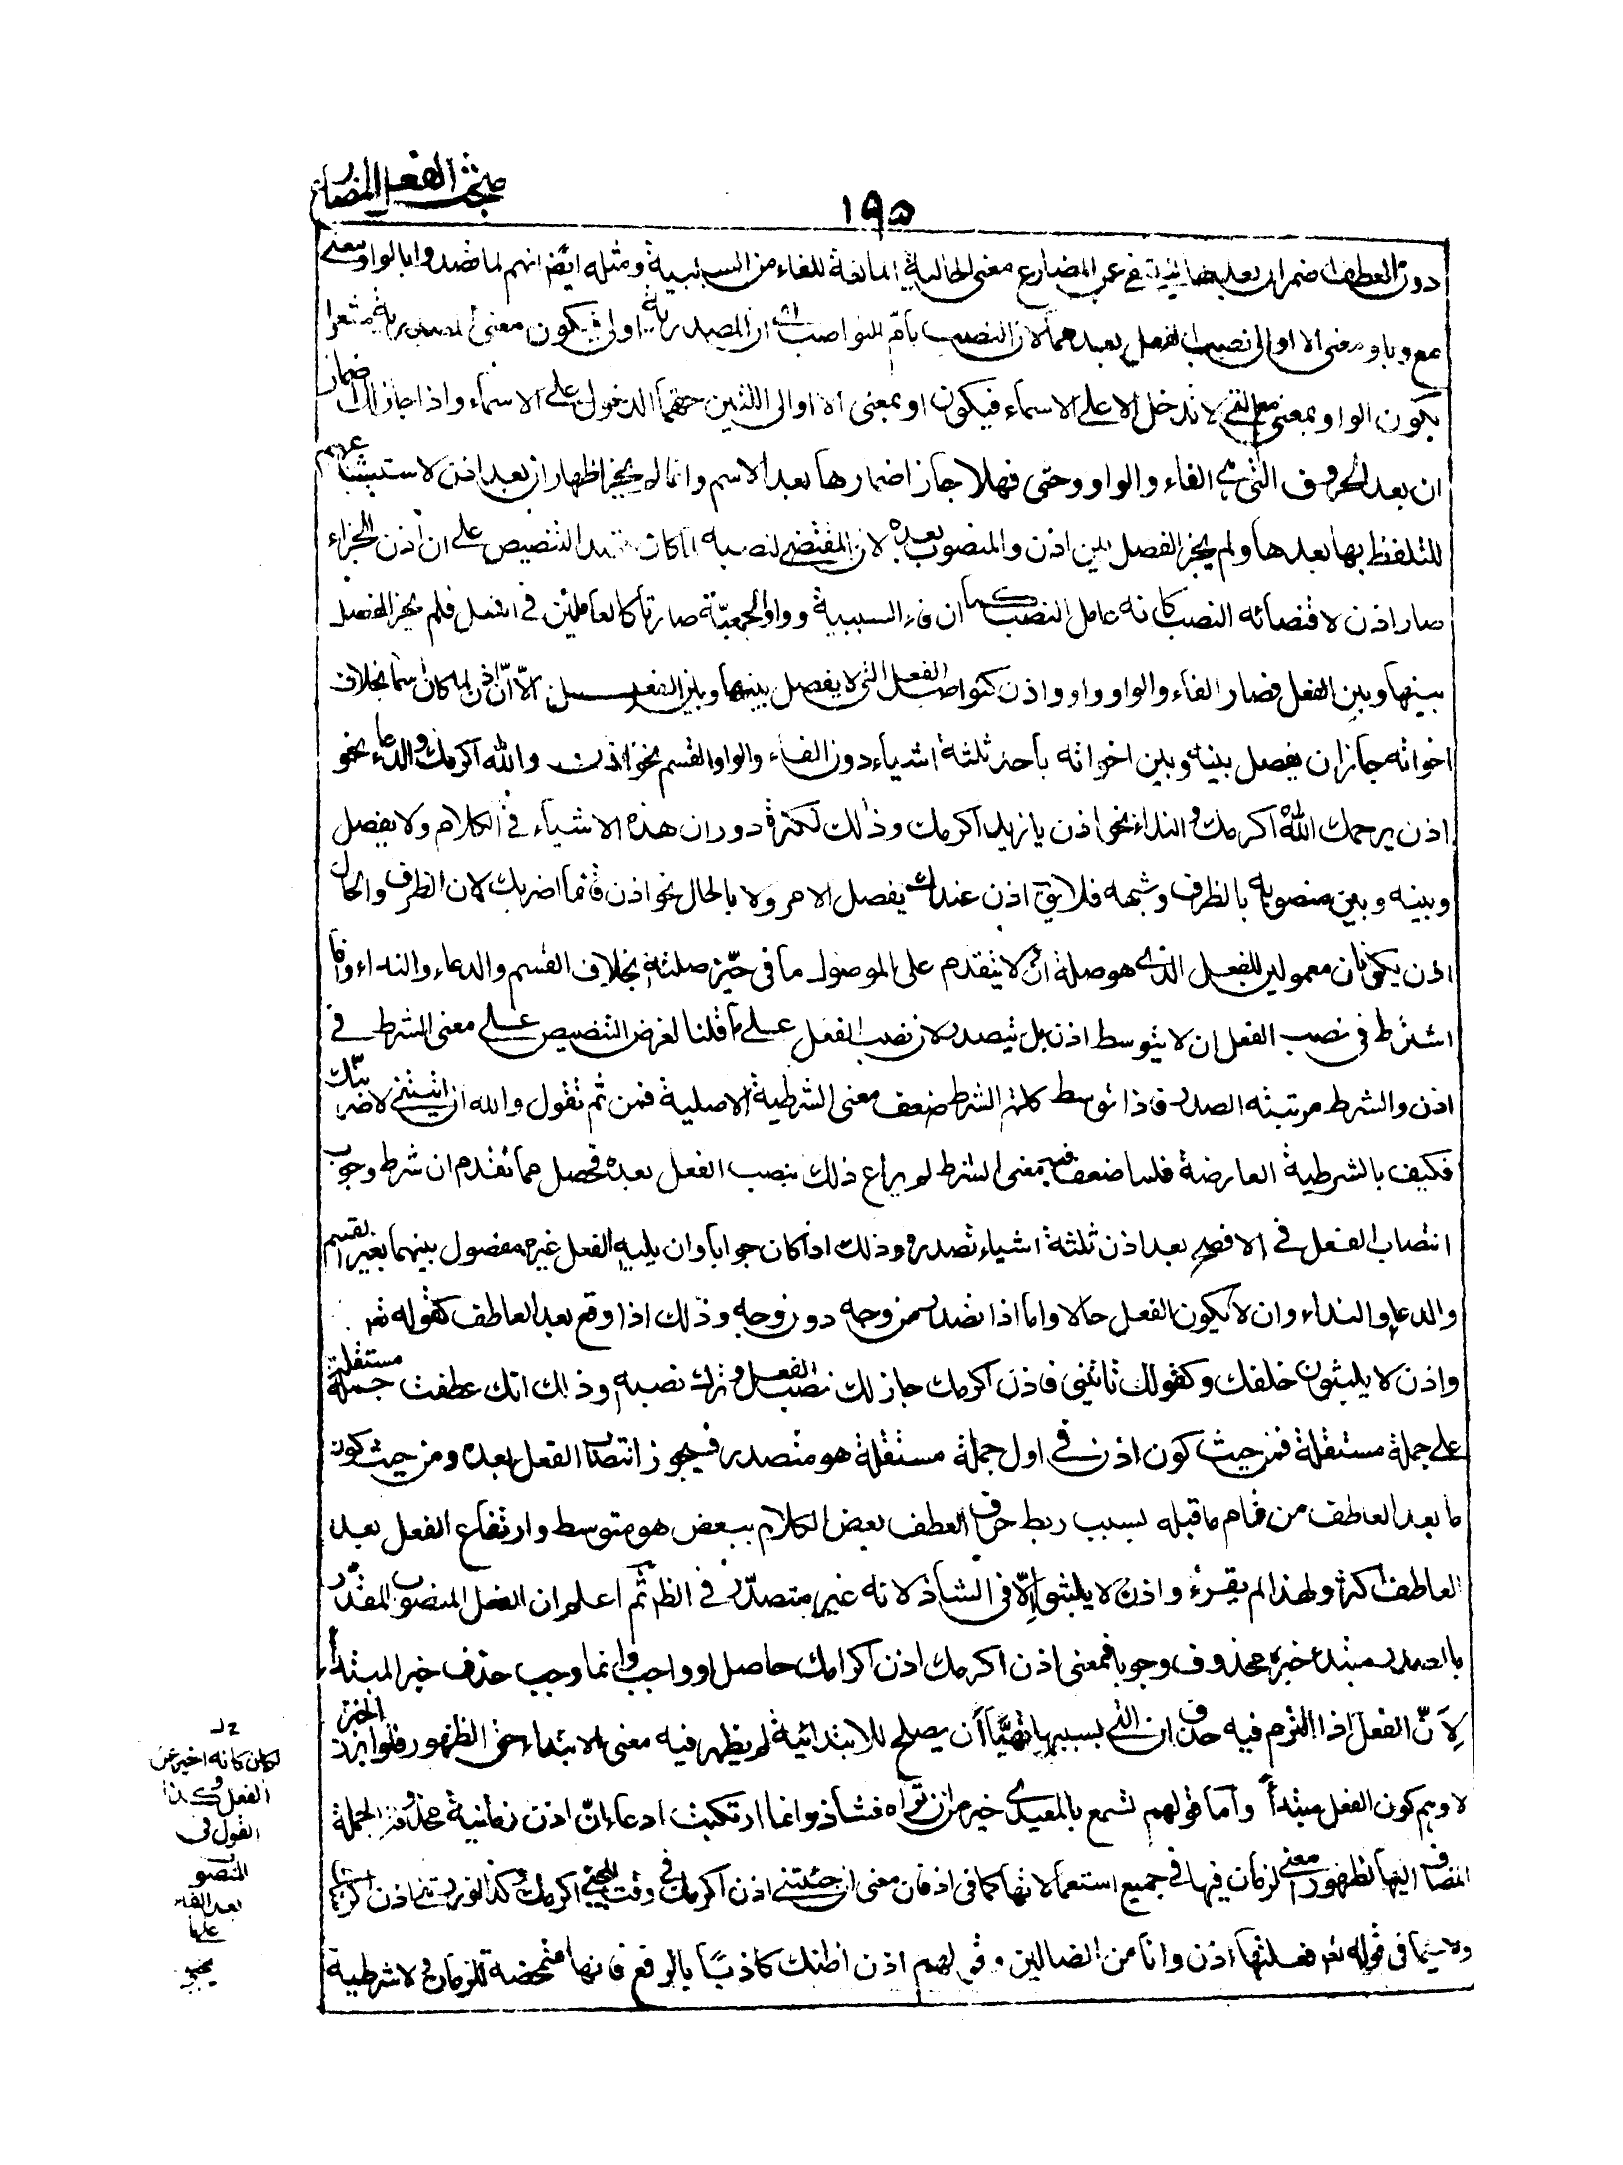 مبحث الفعل المضارع
١٩٥
دون العطف اضمر ان بعدها لينتفى عن المضارع معنى الحالية المانعة للفاء من السببية ومثله ايضا انهم لما قصدوا بالواو معنى
مع وباو معنى الا او الى نصب الفعل بعدهما لان النصب بام النواصب ان المصدرية اولى فيكون معنى المصدرية مشعرا
بكون الواو بمعنى مع التى لا تدخل الا على الاسماء فيكون او بمعنى الا او الى اللتين حقهما الدخول على الاسماء واذا جاز لك اضمار
ان بعد الحروف التى هى الفاء والواو وحتى فهلا جاز اضمارها بعد الاسم وانما لم يجز اظهار ان بعد اذن لاستبشاعهم
للتلفظ بها بعدها ولم يجز الفصل بين اذن والمنصوب بعده لان المقتضى لنصبه لما كان قصد التنصيص على ان اذن للجزاء
صار اذن لاقتضائه النصب كانه عامل النصب كما ان فاء السببية وواو الجمعية صارتا كالعاملين فى الفعل فلم يجز الفصل
بينها وبين الفعل فصار الفاء والواو واو واذن كنواصب الفعل التى لا يفصل بينهما وبين الفعل الا ان اذن لما كان اسما بخلاف
اخواته جاز ان يفصل بينه وبين اخواته باحد ثلثة اشياء دون الفاء والواو القسم نحو اذن والله اكرمك والدعاء نحو
اذن يرحمك الله اكرمك والنداء نحو اذن يا زيد اكرمك وذلك لكثرة دوران هذه الاشياء فى الكلام ولا يفصل
وبينه وبين منصوبه بالظرف وشبهه فلا يق اذن عندك يفصل الامر ولا بالحال نحو اذن قائما اضربك لان الظرف والحال
اذن يكونان معمولين للفعل الذى هو صلة ان لا يتقدم على الموصول ما فى حيز صلته بخلاف القسم والدعاء والنداء وانما
اشترط فى نصب الفعل ان لا يتوسط اذن بل يتصدر لان نصب الفعل على ما قلنا لغرض التنصيص على معنى الشرط فى
اذن والشرط مرتبته الصدر فاذا توسط كلمة الشرط ضعف معنى الشرطية الاصلية فمن ثم تقول والله ان اتيتنى لاضربنك
فكيف بالشرطية العارضة فلما ضعف فيه معنى الشرط لم يراع ذلك بنصب الفعل بعده فحصل مما تقدم ان شرط وجوب
انتصاب الفعل فى الافصح بعد اذن ثلثة اشياء تصدره وذلك اذا كان جوابا وان يليه الفعل غير مفصول بينهما بغير القسم
والدعاء والنداء وان لا يكون الفعل حالا واما اذا تصدر من وجه دون وجه وذلك اذا وقع بعد العاطف كقوله تعر
واذن لا يلبثون خلفك وكقولك تاتينى فاذن اكرمك جاز لك نصب الفعل وترك نصبه وذلك انك عطفت جملة مستقلة
على جملة مستقلة فمن حيث كون اذن فى اول جملة مستقلة هو متصدر فيجوز انتصاب الفعل بعده ومن حيث كون
ما بعد العاطف من تمام ما قبله بسبب ربط حرف العطف بعض الكلام ببعض هو متوسط وارتفاع الفعل بعد
العاطف اكثر ولهذا لم يقرء واذن لا يلبثوا الا فى الشاذ لانه غير متصدر فى الظ ثم اعلم ان الفعل المنصوب المقدر
بالمصدر مبتدء خبره محذوف وجوبا فمعنى اذن اكرمك اذن اكرامك حاصل او واجب وانما وجب حذف خبر المبتدأ
لان الفعل اذا التزم فيه حذف ان التى بسببها تهيأ ان يصلح للابتدائية لم يظهر فيه معنى الابتداء حق الظهور فلو ابرز الخبر
لاوهم كون الفعل مبتدأ واما قولهم تسمع بالمعيدى خير من ان تراه فشاذ وانما ارتكبت ادعاء ان اذن زمانية محذوفة الجملة
المضاف اليها لظهور معنى الزمان فيها فى جميع استعمالاتها كما فى اذ فان معنى ان جئتنى اذن اكرمك فى وقت المجئ اكرمك
ولا سيما فى قوله تعر فعلتها اذن وانا من الضالين وقولهم اذن اظنك كاذبا بالرفع فانها متمحضة للزمان لا شرطية
لكان كانه اخبر عن
الفعل وكذا
القول فى
المنصوب
بعد الفاء